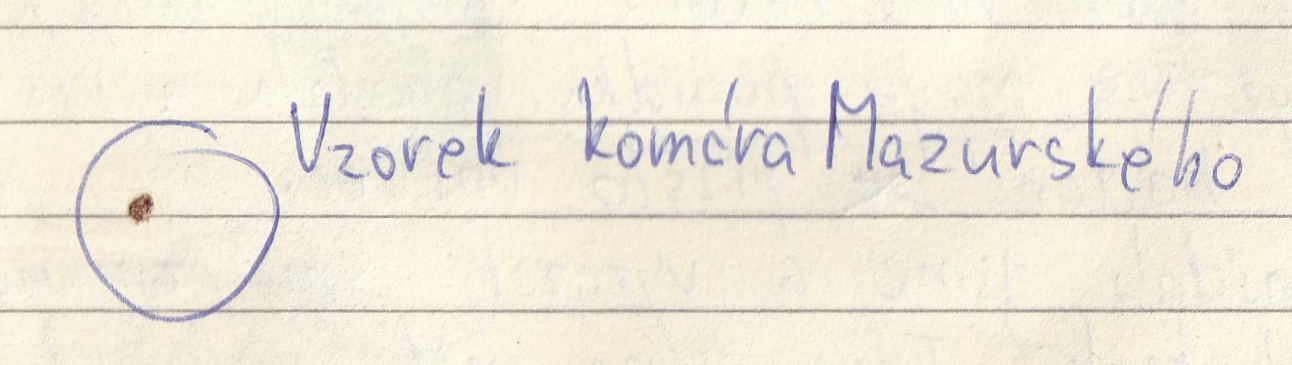 Vzorek komára Mazurského